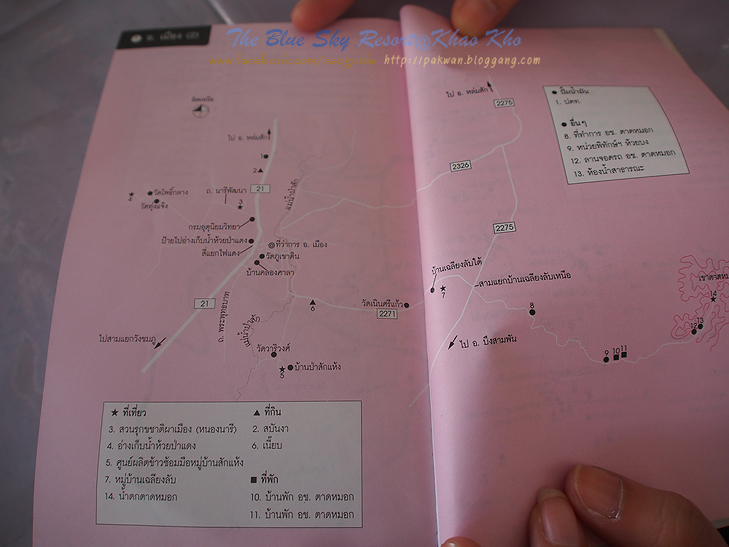 The Blue Sky Resort@Khao Kho
http://pakwan.bloggang.com
อ. เมือง (2)
ทิศเหนือ
ไป อ. หล่มสัก
1
2
21
แม่น้ำป่าสัก
ถ. นารีพัฒนา
3
4
วัดโพธิ์กลาง
วัดทุ่งแจ้ง
กรมอุตุนิยมวิทยา
ป้ายไปอ่างเก็บน้ำห้วยป่าแดง
สี่แยกไฟแดง
ที่ว่าการ อ. เมือง
วัดภูเขาดิน
บ้านคลองศาลา
21
ถ. พระพุทธบาท
แม่น้ำป่าสัก
6
วัดเนินศรีแก้ว
2271
ไปสามแยกวังชมภู
วัดวาริวงศ์
5
บ้านป่าสักแห้ง
★ ที่เที่ยว
3. สวนรุกขชาติผาเมือง (หนองนารี)
4. อ่างเก็บน้ำห้วยป่าแดง
5. ศูนย์ผลิตข้าวซ้อมมือหมู่บ้านสักแห้ง
7. หมู่บ้านเฉลียงลับ
14. น้ำตกตาดหมอก
▲ ที่กิน
2. สบันงา
6. เนี๊ยบ
■ ที่พัก
10. บ้านพัก อช. ตาดหมอก
11. บ้านพัก อช. ตาดหมอก
ไป อ. หล่มสัก
2275
2326
2275
● ปั๊มน้ำมัน
1. ปตท.
● อื่นๆ
8. ที่ทำการ อช. ตาดหมอก
9. หน่วยพิทักษ์ฯ ห้วยบง
12. ลานจอดรถ อช. ตาดหมอก
13. ห้องน้ำสาธารณะ
บ้านเฉลียงลับใต้
7
สามแยกบ้านเฉลียงลับเหนือ
8
ไป อ. บึงสามพัน
9
10
11
12
13
14